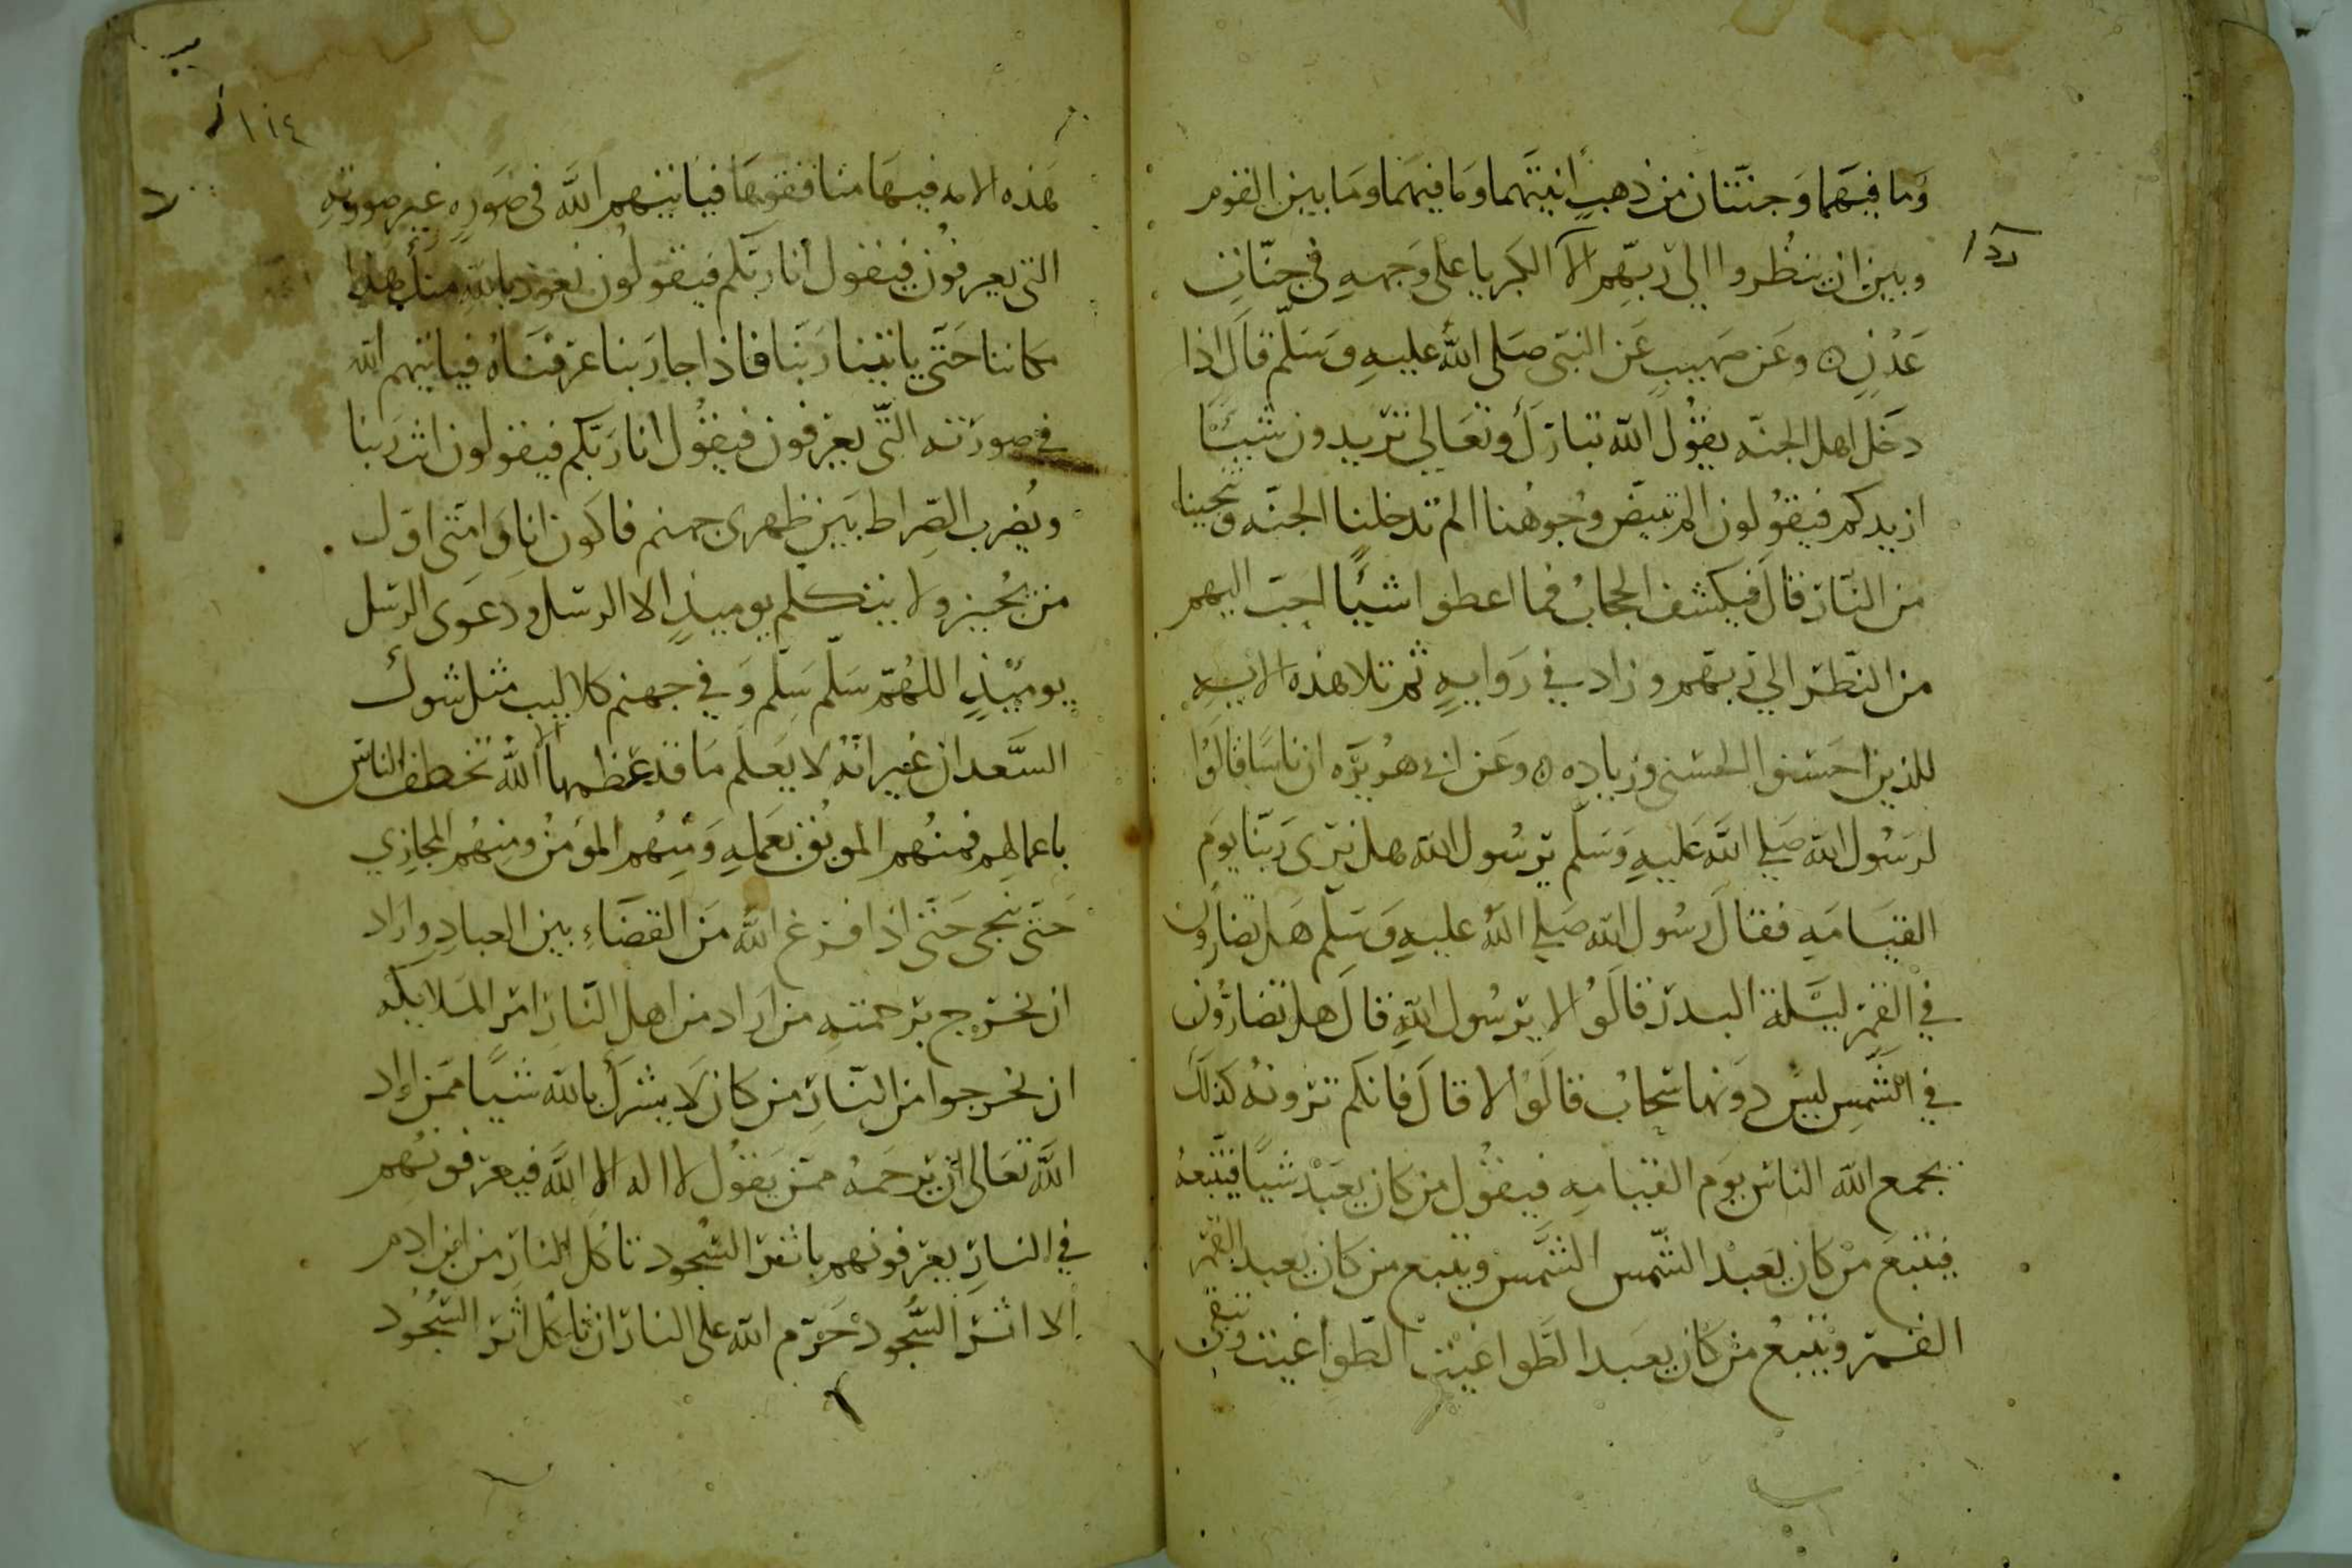 وَما فيهَما وَجنّتان من ذهبٍ انيتهما وَما فيهَما وَما بين القوم
رداء
وبين ان ينظُروا الي ربّهِم الا الكبريا على وَجههِ في جنّاتِ
عَدْنٍ ه وعَن صهيبٍ عَن النبيّ صَلى اللَّه عليهِ وَسَلّم قالَ اذا
دَخَل اهل الجنّه يقُول اللّه تباركَ وتعَالي تريدون شيئًا
ازيدكم فيقُولون الم تبيّض وُجوُهنا الم تدخلنا الجنّه وتنجينا
من النّار قالَ فيكشف الحجابُ فما اعطوا شيئًا احبّ اليهم
من النّظر الي ربهم وزاد في رَوايهٍ ثم تلا هذه الايه
للذين احسَنوا الحسنى وزياده ه وعَن ابي هُريرَه ان ناسًا قالَوُا
لرَسُول اللّه صَلي اللَّه عَليهِ وَسَلّم يرسُول اللّه هل نرى رَبّنا يوَم
القيَامَهِ فقال رسُول اللّه صَلي اللَّه عليهِ وَسَلّم هَل تضارون
في القمر ليَلة البدر قالَوُا لا يرسُول اللّهِ قالَ هل تضارُّون
في الشّمسِ ليسَ دوَنها سَحابُ قالَوُا لا قالَ فانكم ترَونهُ كذلكَ
يجمع اللّه الناس يوَم القيامهِ فيقُول من كان يعبَدْ شيًا فيتبعهُ
فيتبعَ من كان يعَبدْ الشّمس الشَّمس ويتبع من كان يعبد القمر
القمر ويتبعُ من كان يعبَد الطَّواغيت الطّواغيت وتبقى
١١٤
هَذه الامه فيهَا منافقوهَا فياتيهم اللَّه في صوَرهٍ غير صورتهِ
التي يعرفوُن فيقول انا ربّكم فيقولون نعوذ باللّه منكَ هذا
مكاننا حَتّى ياتينا رَبّنا فاذا جا رَبنا عرفنَاهُ فياتيهم اللّه
في صورَته التّي يعرفون فيقُول انا رَبّكم فيقولون انت رَبنا
ويُضرب الصّراط بَين ظهرى جهنم فاكوَن انا وَامّتى اوّل
من يُجيز ولا يتكلم يوميذٍ الا الرسل ودعوَى الرّسل
يوميْذٍ اللهُمّ سَلّم سَلّم وَفي جهنم كلاليب مثل شوكِ
السَّعدان غير انّهُ لا يَعلَم مَا قدر عظمها الا اللَّهُ تخطف الناسَ
باعمالهم فمنهُم الموبَقُ بعَملِهِ وَمنهُم المؤمنُ ومِنهُم المجازي
حَتّى ينجى حَتّى اذا فرغ اللَّه مَن القضَاءِ بين العبادِ واراد
ان يخرج برحمتهِ من اراد من اهل النّار امر المَلايكه
ان يخرجوا من النّارِ من كان لا يشركَ باللّه شيًا ممَن اراد
اللَّه تعَالى ان يَرحَمهُ ممّن يَقوُل لا اله الا اللَّه فيعرفونهُم
في النارِ يعرفونهم باثر السُجود تاكل النّار من ابن ادم
الا اثر السُّجود حَرّم اللّه على النار ان تاكل اثر السُّجُود